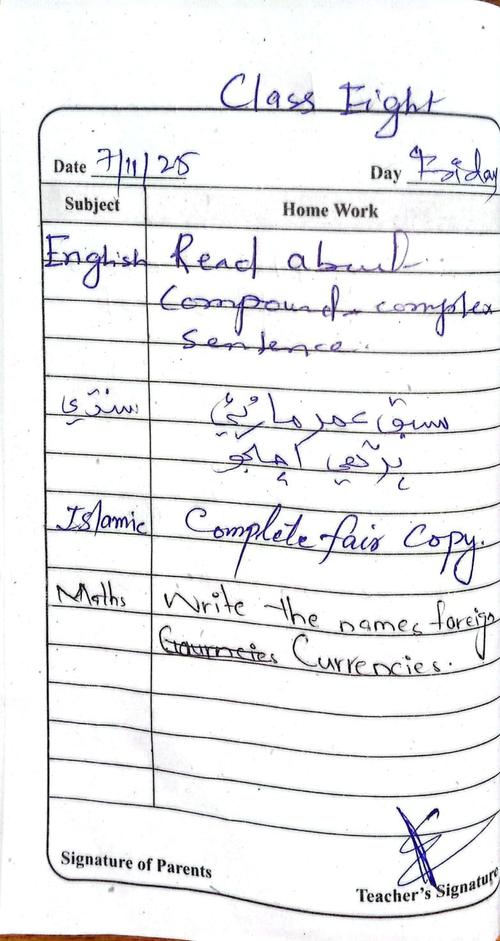 Class Eight
Date 7/11/25 Day Friday
Subject Home Work
English Read about
Compound-complex
sentence.
سنڌي سبق عمر مارئي
پڙهي اچجو
Islamic Complete fair copy.
Maths Write the names foreign
Currencies.
Signature of Parents
Teacher's Signature